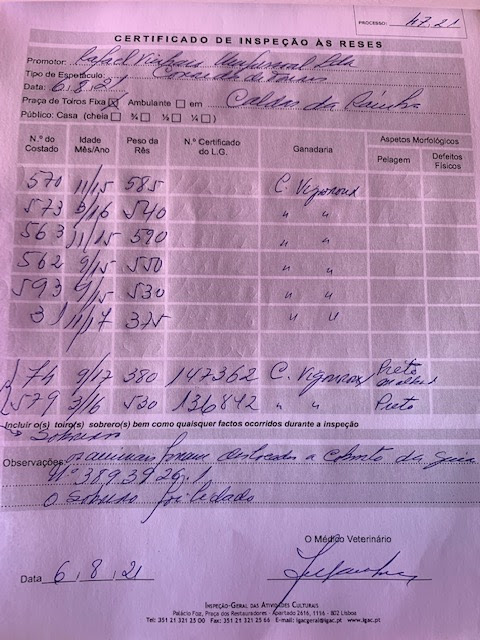 PROCESSO: 47.21
CERTIFICADO DE INSPEÇÃO ÀS RESES
Promotor: Rafael Vilhais Unipessoal Lda
Tipo de Espetáculo: Corrida de Toiros
Data: 6.8.21
Praça de Toiros Fixa ☒ Ambulante ☐ em Caldas da Rainha
Público: Casa (cheia ☐ ¾ ☐ ½ ☐ ¼ ☐)
N.º do Costado Idade Mês/Ano Peso da Rês N.º Certificado do L.G. Ganadaria Aspetos Morfológicos Pelagem Defeitos Físicos
570 11/15 585 C. Vigouroux
573 3/16 540 " "
563 11/15 590 " "
562 9/15 550 " "
593 9/15 530 " "
31 11/17 375 " "
74 9/17 380 147362 C. Vigouroux Preto
579 3/16 530 136842 " " Preto
Incluir o(s) toiro(s) sobrero(s) bem como quaisquer factos ocorridos durante a inspeção
→ Sobrero
Observações: os animais foram deslocados a coberto da guia
Nº 3893926.1
O Sobrero foi lidado
O Médico Veterinário
Data 6.8.21
INSPEÇÃO-GERAL DAS ATIVIDADES CULTURAIS
Palácio Foz, Praça dos Restauradores - Apartado 2616, 1116 - 802 Lisboa
Tel: 351 21 321 25 00 Fax: 351 21 321 25 66 E-mail: igacgeral@igac.pt www.igac.pt